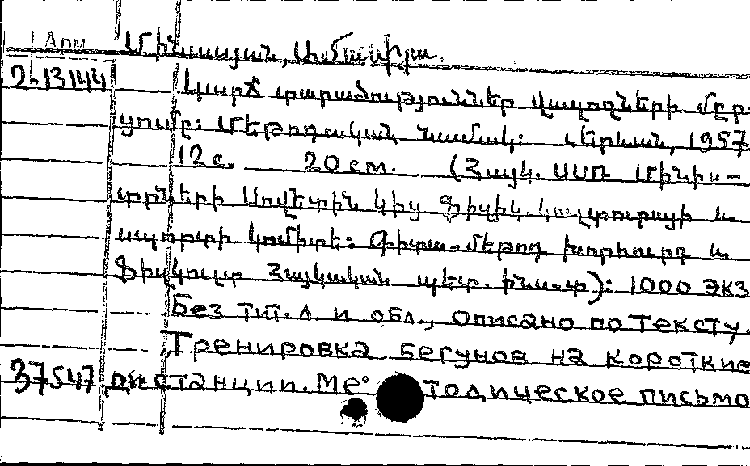 Арм Մինասյան,
2-13144 Կարճ տարածություններ վազողների մըր-
ցումը: Մեթոդական նամակ: Երևան, 1957
12 с. 20 см. (Հայկ. ՍՍՌ Մինիս-
տրների Սովետին կից Ֆիզիկ. կուլտուրայի և
սպորտի կոմիտե: Գիտա-մեթոդ խորհուրդ և
Ֆիզկուլտ Հայկական պետ. ինս-տ): 1000 экз
Без тит. л. и обл., описано по тексту.
Тренировка бегунов на короткие
37547 дистанции. Методическое письмо